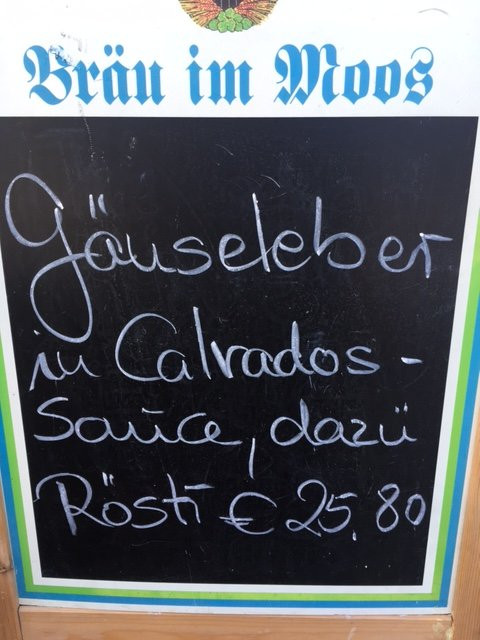 Bräu im Moos
Gänseleber
in Calvados-
Sauce, dazu
Rösti € 25,80